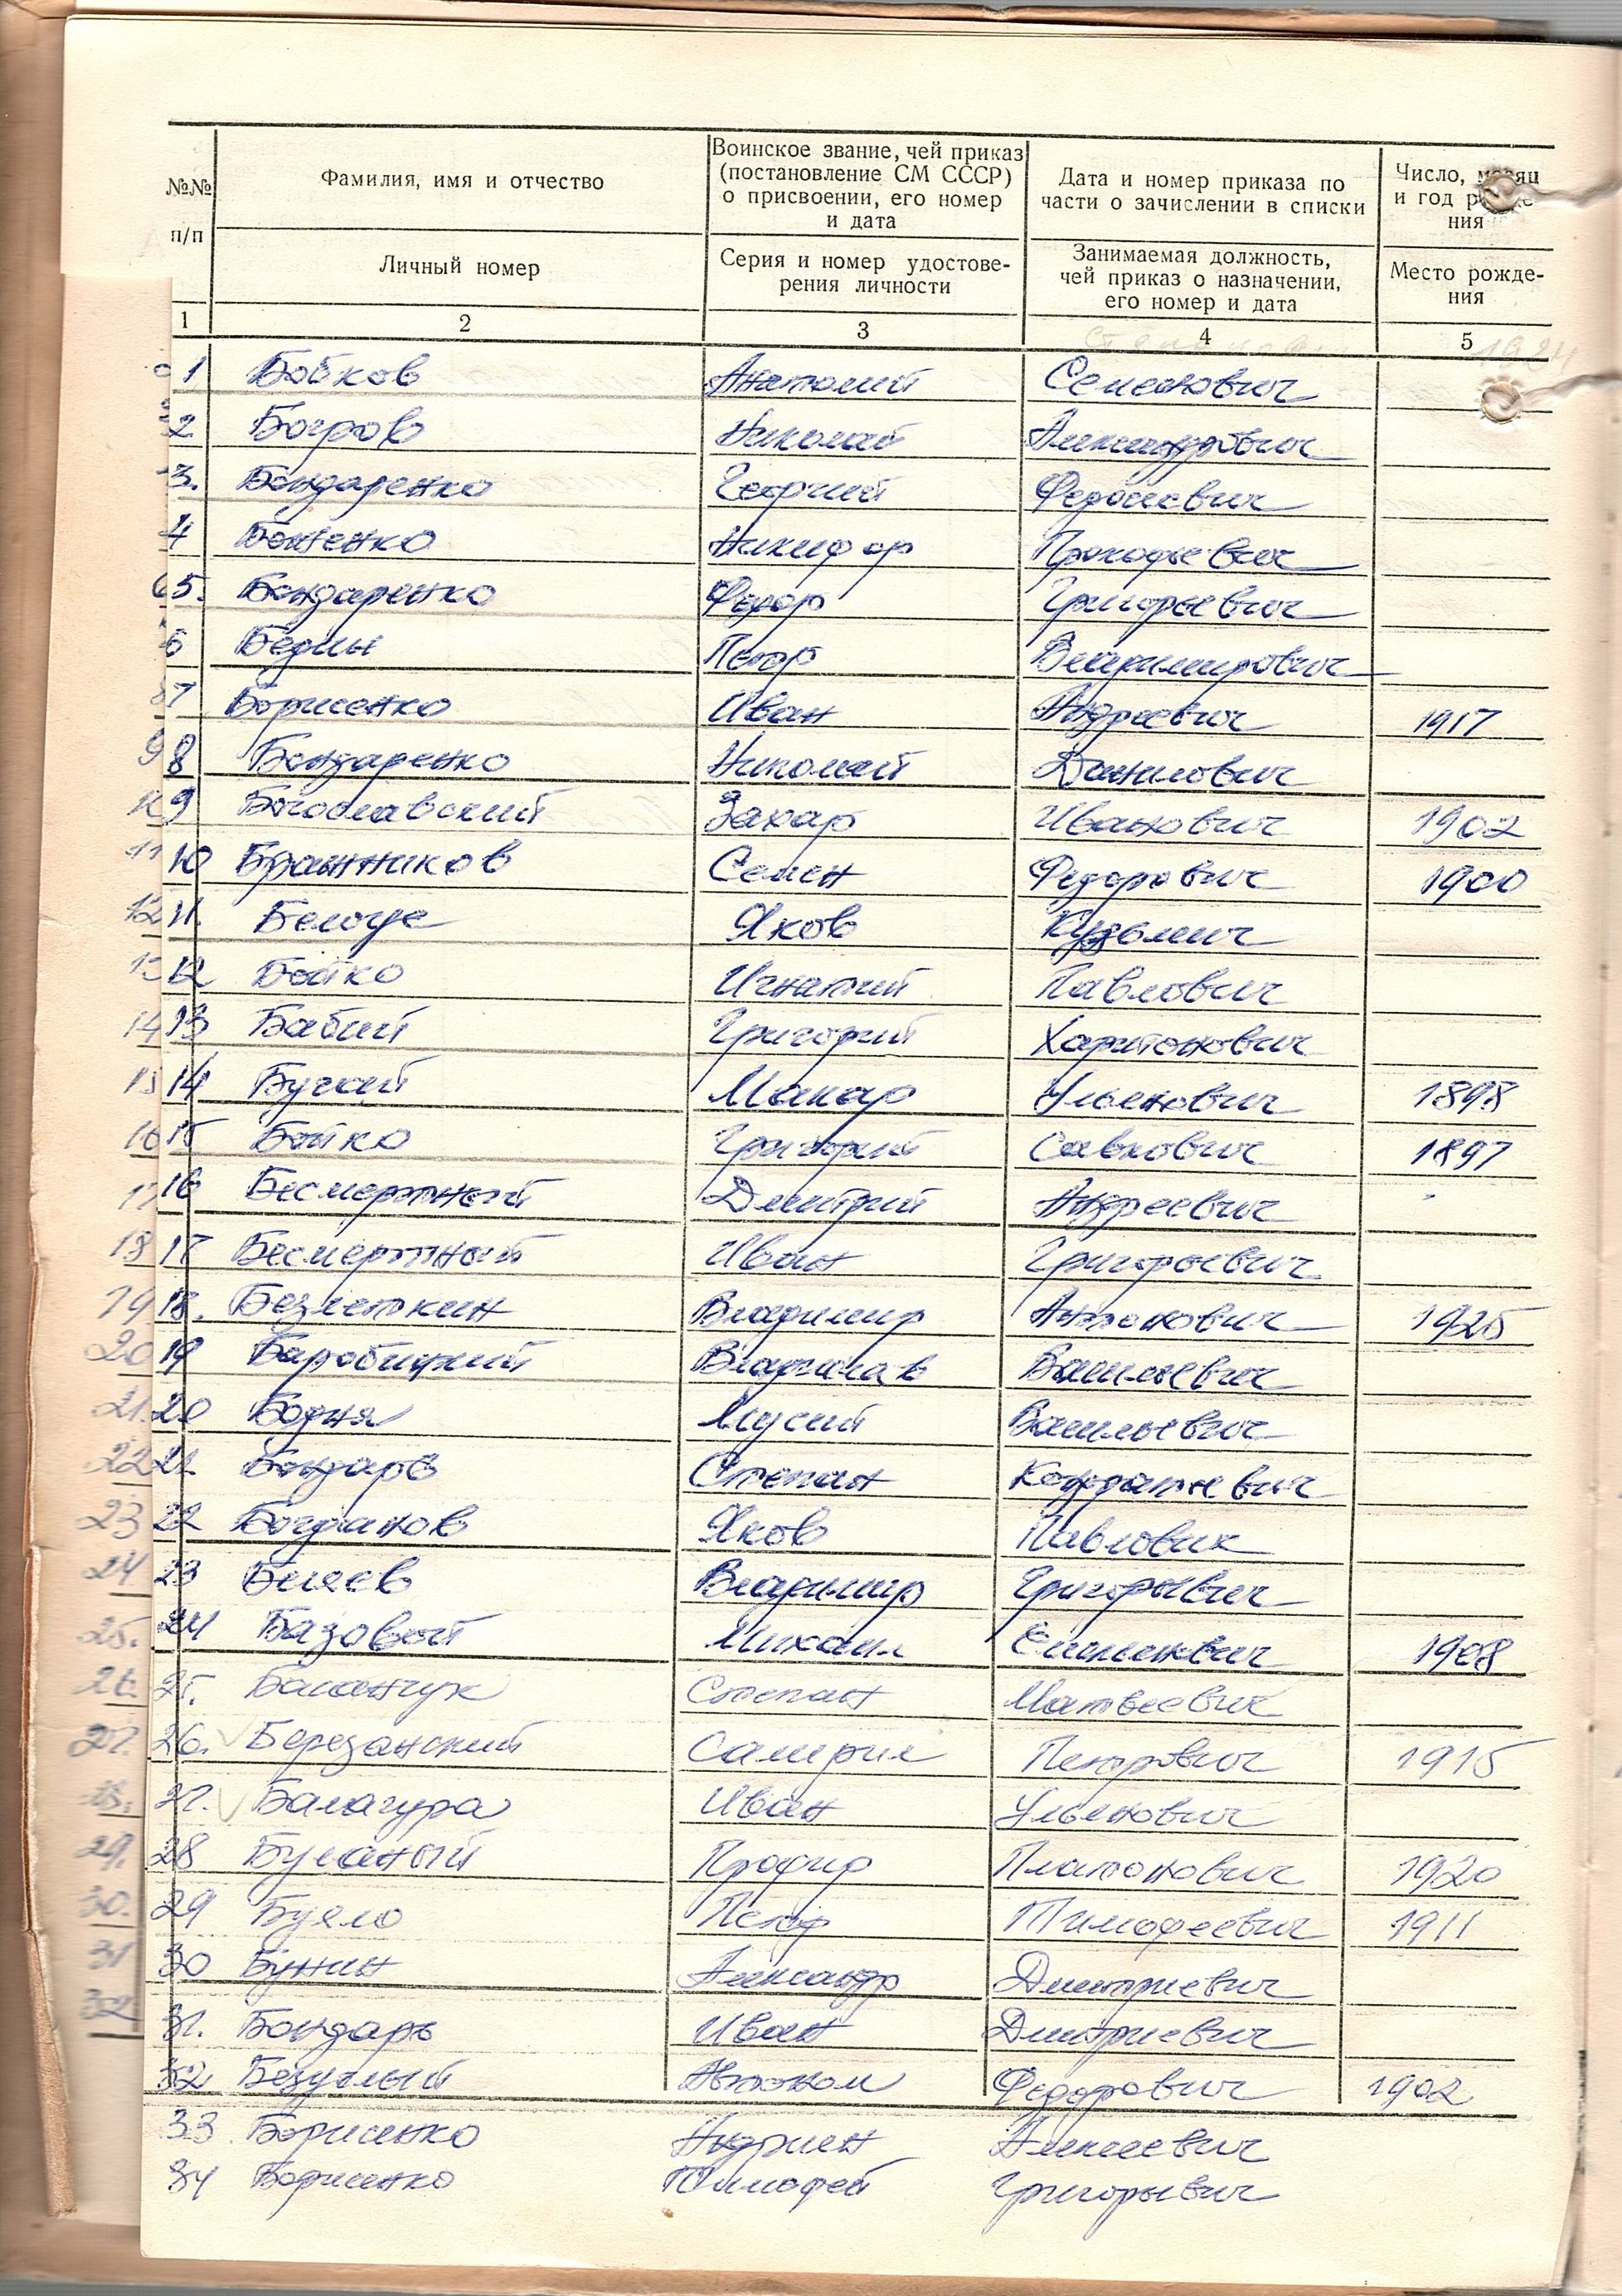 №№ п/п
Фамилия, имя и отчество
Воинское звание, чей приказ
(постановление СМ СССР)
о присвоении, его номер
и дата
Дата и номер приказа по
части о зачислении в списки
Число,
и год
ния
Личный номер
Серия и номер удостове-
рения личности
Занимаемая должность,
чей приказ о назначении,
его номер и дата
Место рожде-
ния
1 2 3 4 5
1 Бобков Анатолий Семенович
2 Богров Николай Александрович
3. Бондаренко Георгий Федосиевич
4 Боженко Никифор Прокофьевич
5. Бондаренко Федор Григорьевич
6 Бедин Петр Владимирович
7 Борисенко Иван Андреевич 1917
8 Бондаренко Николай Данилович
9 Богославский Захар Иванович 1902
10 Бражников Семен Федорович 1900
11. Яков Кузьмич
12 Бойко Игнатий Павлович
13 Бабий Григорий Харитонович
14 Макар Ульянович 1898
15 Бойко Григорий Савкович 1897
16 Бесмертный Дмитрий Андреевич
17 Бесмертный Иван Григорьевич
18. Безлеткин Владимир Антонович 1925
19 Владислав Васильевич
20 Бодня Мусий Васильевич
21. Бондарь Степан Кондратьевич
22 Богданов Яков Павлович
23 Беляев Владимир Григорьевич
24 Базовой Михаил Емельянович 1908
25. Басанчук Степан Матвеевич
26. Березанский Петрович 1915
27. Балагура Иван Ульянович
28 Буланый Платонович 1920
29 Буяло Петр Тимофеевич 1911
30 Бунин Александр Дмитриевич
31. Бондарь Иван Дмитриевич
32 Безуглый Автоном Федорович 1902
33 Борисенко Андриян Алексеевич
34 Борисенко Тимофей Григорьевич